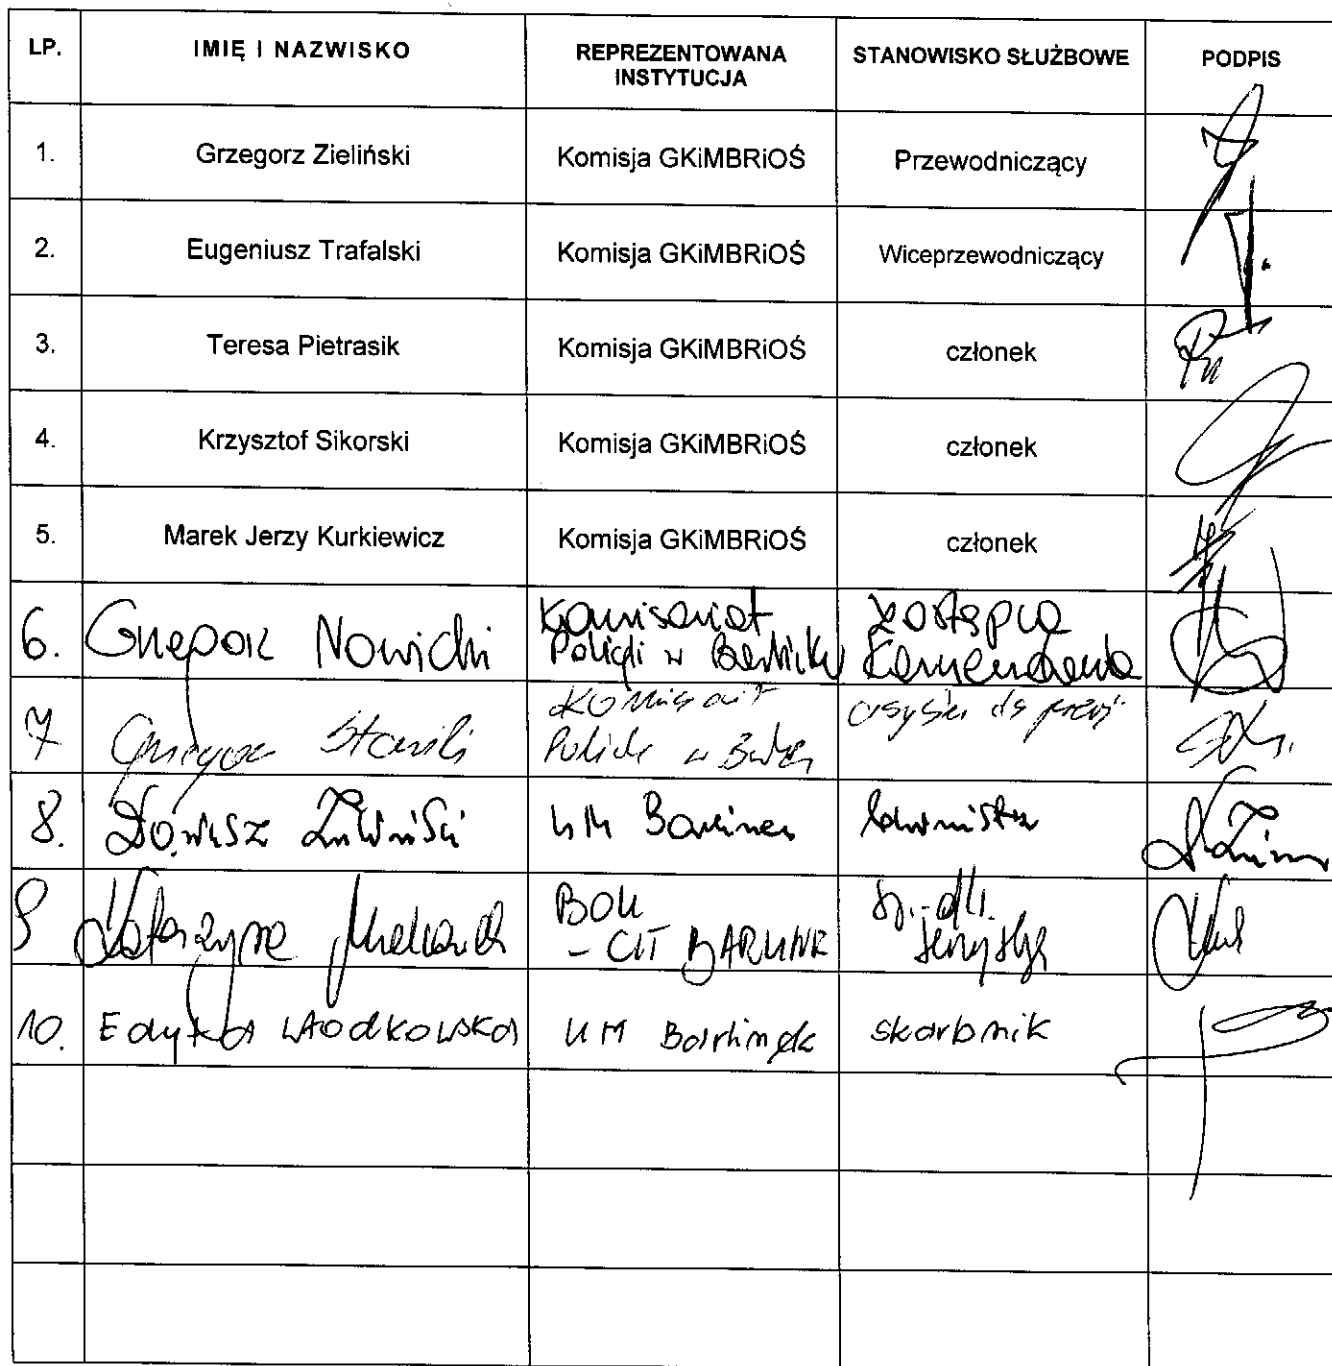 LP. IMIĘ I NAZWISKO REPREZENTOWANA INSTYTUCJA STANOWISKO SŁUŻBOWE PODPIS
1. Grzegorz Zieliński Komisja GKiMBRiOŚ Przewodniczący
2. Eugeniusz Trafalski Komisja GKiMBRiOŚ Wiceprzewodniczący
3. Teresa Pietrasik Komisja GKiMBRiOŚ członek
4. Krzysztof Sikorski Komisja GKiMBRiOŚ członek
5. Marek Jerzy Kurkiewicz Komisja GKiMBRiOŚ członek
6. Grzegorz Nowicki Komisariat Policji w Barlinku Zastępca Komendanta
7 Grzegorz Komisariat Policji w
8. Dariusz Zieliński UM Barlinek burmistrz
9 Katarzyna BOK - CIT BARLINEK
10. Edyta Włodkowska UM Barlinek skarbnik